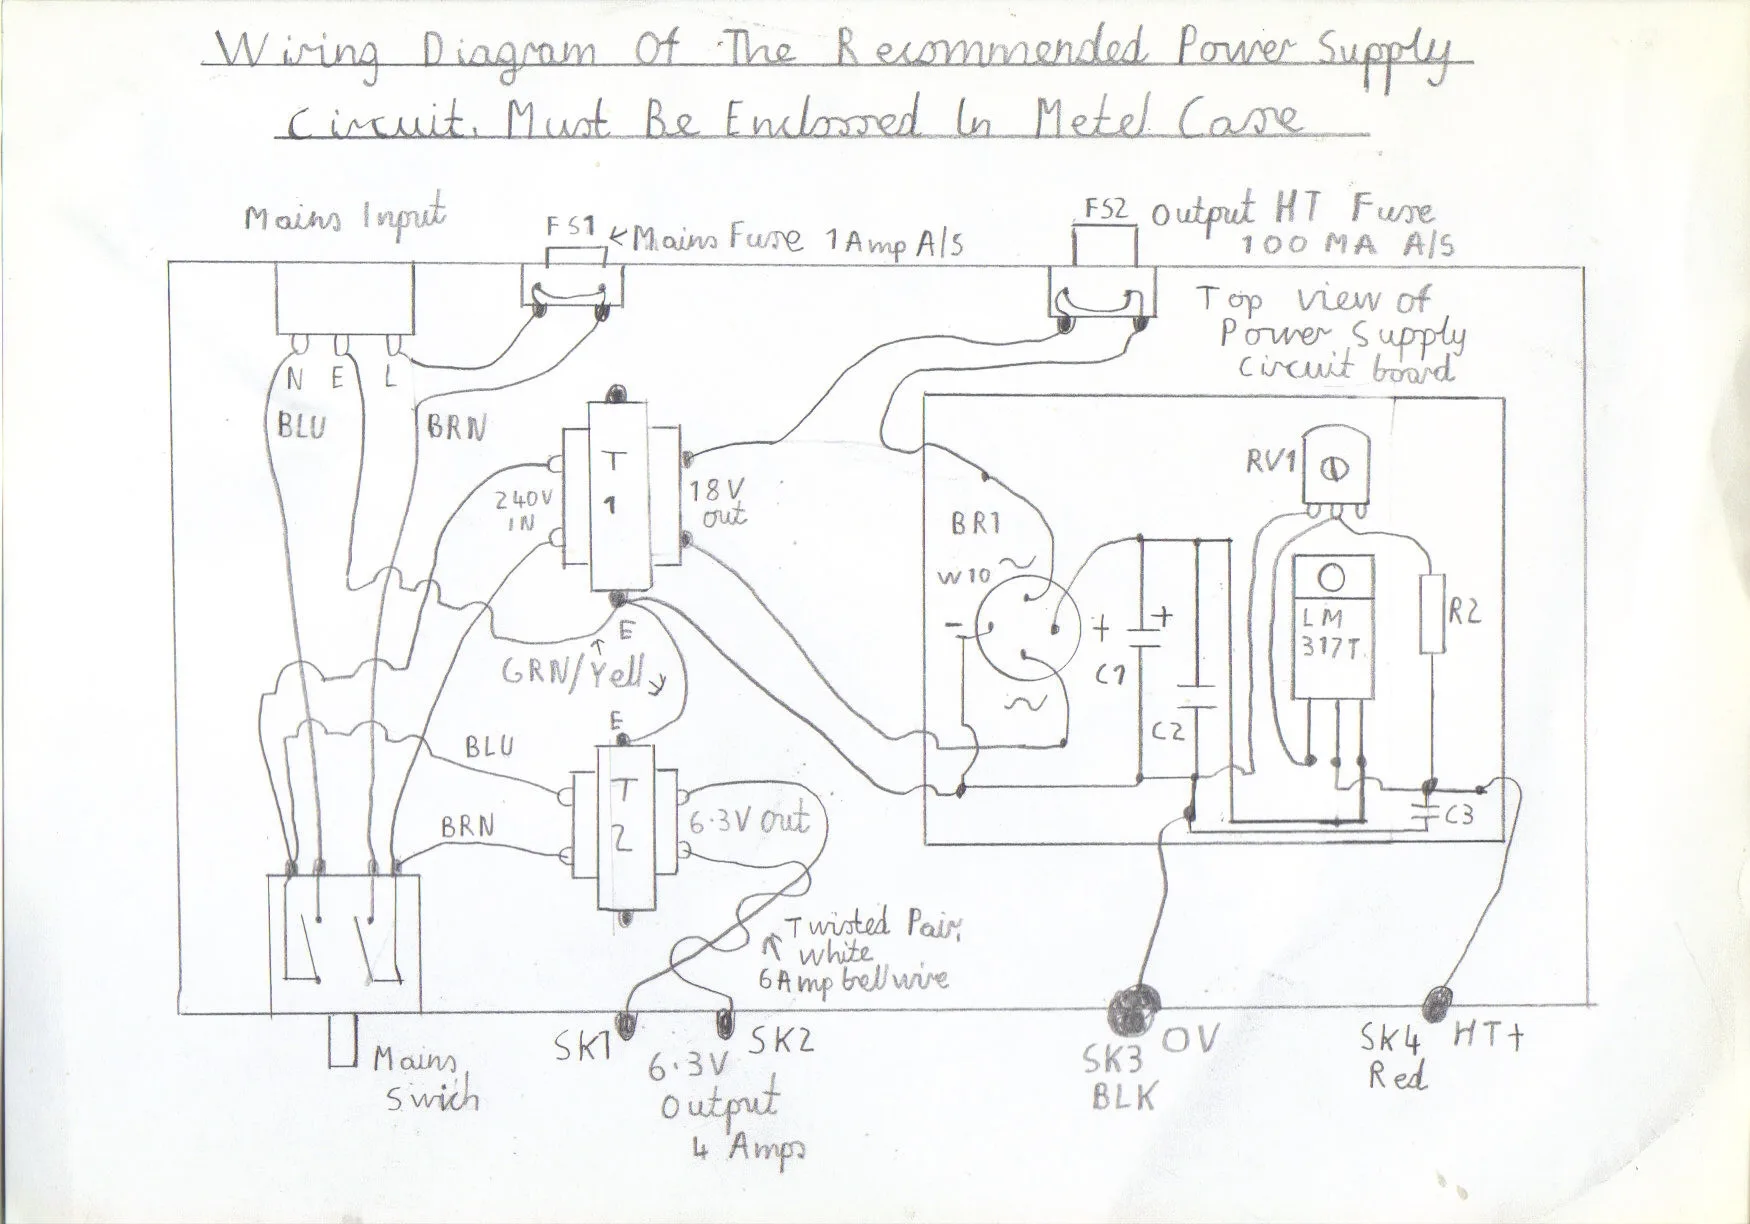 Wiring Diagram Of The Recommended Power Supply
Circuit. Must Be Enclossed In Metel Case
Mains Input
FS1
←Mains Fuse 1Amp A/S
FS2
Output HT Fuse
100 MA A/S
Top view of
Power Supply
Circuit board
N E L
BLU
BRN
T
1
240V
IN
18V
out
E
GRN/Yell
E
BLU
BRN
T
2
6.3V out
BR1
W10
~
-
+
~
+
C1
C2
RV1
LM
317T
R2
C3
Twisted Pair,
White
6Amp bell wire
Mains
Swich
SK1
SK2
6.3V
Output
4 Amps
SK3
BLK
0V
SK4
Red
HT+